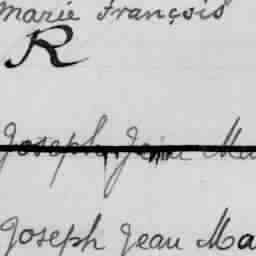 Marie François
R
Joseph Jean Ma
Joseph Jean Ma